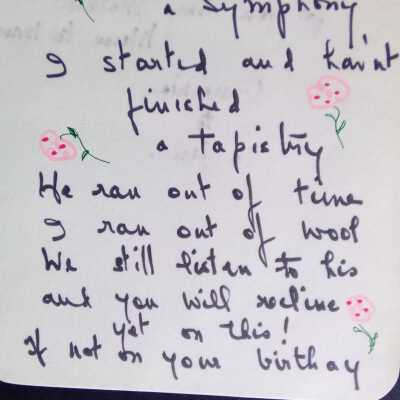 a symphony
I started and hav'nt
finished
a tapistry
He ran out of time
I ran out of wool
We still listen to his
and you will recline
yet on this!
If not on your birthay